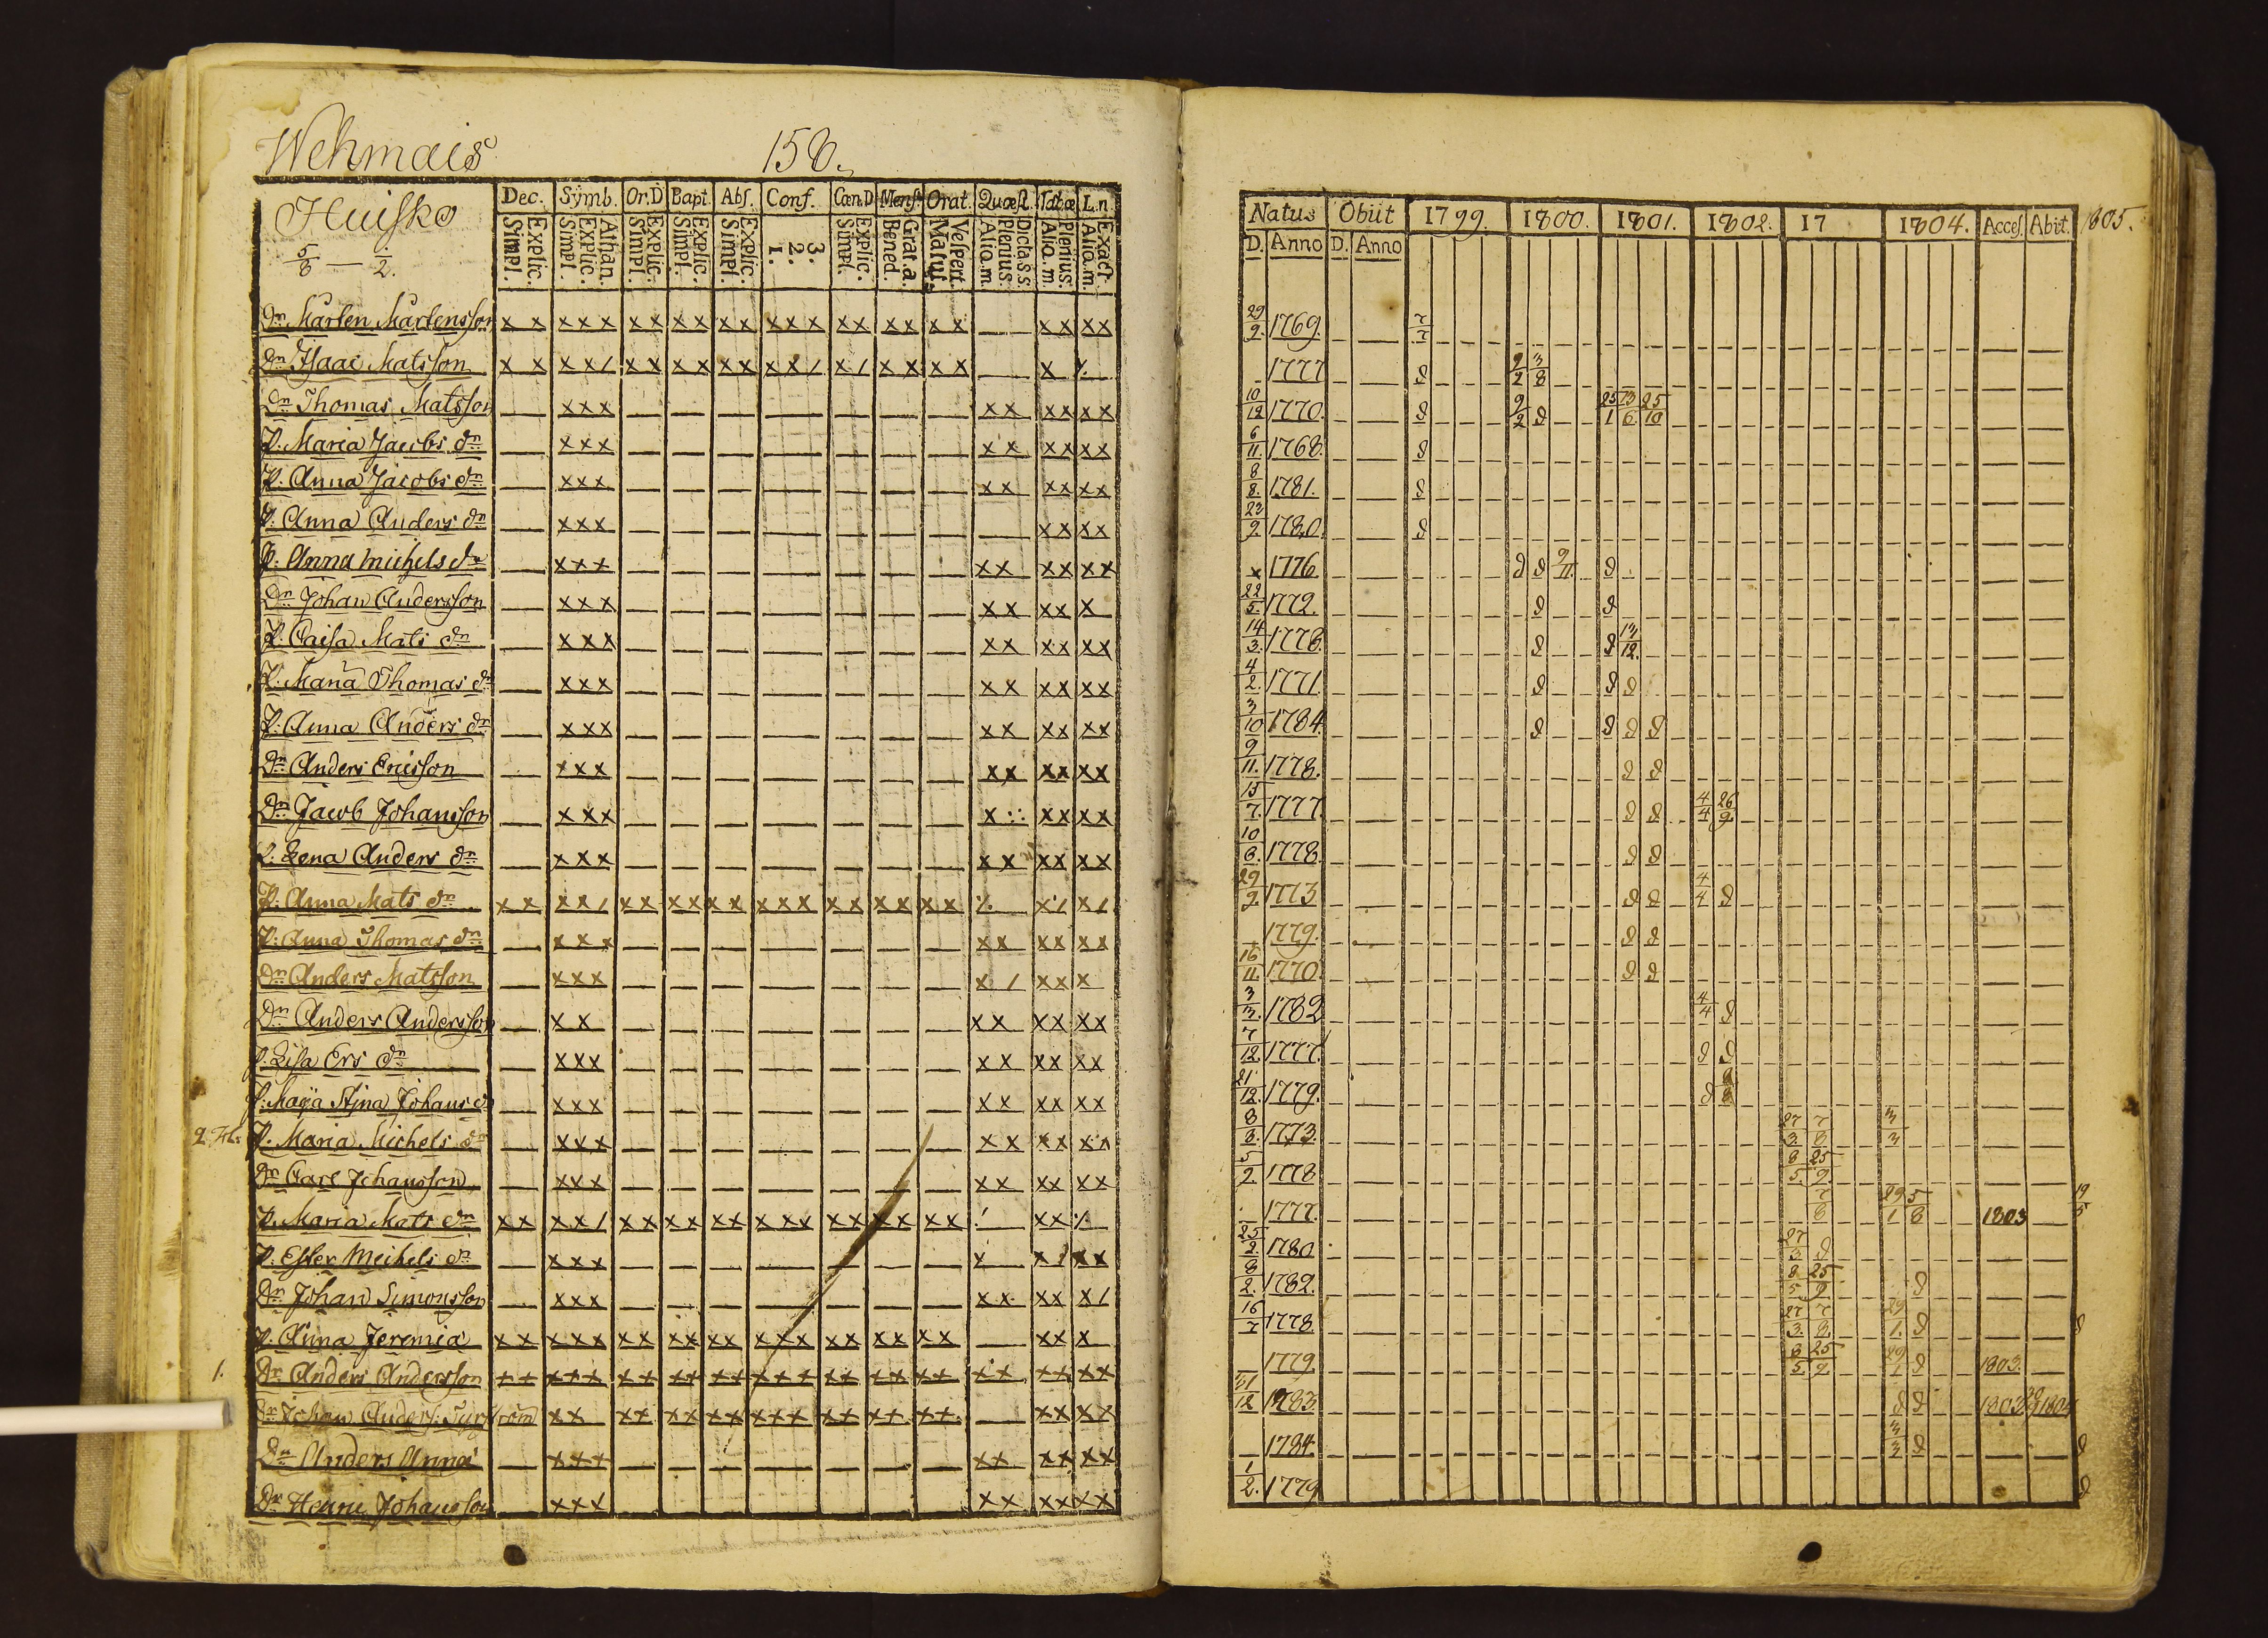 Wehmais
158.
Huisko
5/8 — 1/2.
Dec. Symb. Or.D Bapt. Abs. Conf. Cœn.D Mens. Orat. Quæst. Tabæ L.n
Explic. Simpl. Athan. Explic. Simpl. Explic. Simpl. Explic. Simpl. Explic. Simpl. 3. 2. 1. Explic. Simpl. Grat.a. Bened. Vespert. Matut. Dicta s.s. Plenius. Aliq.m. Plenius. Aliq.m Exact. Aliq.m.
Dn Marten Martensson x x x x x x x x x x x x x x x x x x x x x x x x
Dn Isaac Matsson x x x x / x x x x x x x x / x / x x x x x
Dn Thomas Matsson x x x x x x x x x
P. Maria Jacobs dn x x x x x x x x x
P. Anna Jacobs dn x x x x x x x x x
P. Anna Anders dn x x x x x x x
P. Anna Michels dn x x x x x x x x x
Dn Johan Andersson x x x x x x x x
P. Caisa Mats dn x x x x x x x x x
P. Maria Thomas dn x x x x x x x x x
P. Anna Anders dn x x x x x x x x x
Dn Anders Ericsson x x x x x x x x x
Dn Jacob Johansson x x x x x x x x
P. Lena Anders dn x x x x x x x x x
P. Anna Mats dn x x x x / x x x x x x x x x x x x x x x x / x /
P. Anna Thomas dn x x x x x x x x x
Dn Anders Matsson x x x x / x x x
Dn Anders Andersson x x x x x x x x
P. Lisa Ers dn x x x x x x x x x
P. Maja Stina Johans dn x x x x x x x x x
P. Maria Michels dn x x x x x x x x
Dn Carl Johansson x x x x x x x x x
P. Maria Mats dn x x x x / x x x x x x x x x x x x x x x x x
P. Ester Meihels dn x x x x x / x x
Dn Johan Simonsson x x x x x x x x /
P. Anna Jeremiæ x x x x x x x x x x x x x x x x x x x x x x x
1. Dn Anders Andersson x x x x x x x x x x x x x x x x x x x x x x x x x x
Dn Johan Anders. x x x x x x x x x x x x x x x x x x x x x
Dn Anders Anna x x x x x x x x x
Dn Henric Johansson x x x x x x x x x
Natus Obiit 1799. 1800. 1801. 1802. 17 1804. Acces. Abiit. 1805.
D. Anno D. Anno
29/9. 1769.
1777 9/2 3/8
10/12 1770. 9/2 25/1 13/6 25/10
6/11. 1768.
8/8. 1781.
23/9. 1780.
1776.
22/5. 1772.
14/3. 1778. 13/12.
4/2. 1771.
3/10 1784.
9/11. 1778.
13/7. 1777. 4/4 26/9
10/8. 1778.
29/9. 1773 4/4
1779.
16/11. 1770.
3/3. 1782 4/4
7/12. 1777.
21/12. 1779.
8/8. 1773. 27/3. 7/8 3/3
5/2. 1778 8/5. 25/9.
1777. 7/8 29/1 5/8 1803 19/5
25/2. 1780 27/3.
8/2. 1782. 8/5 25/9
16/7 1778. 27/3. 7/8. 29/1.
1779. 8/5 25/9 29/1 1803.
31/12 1783. 1803
1784. 3/3
1/2. 1779